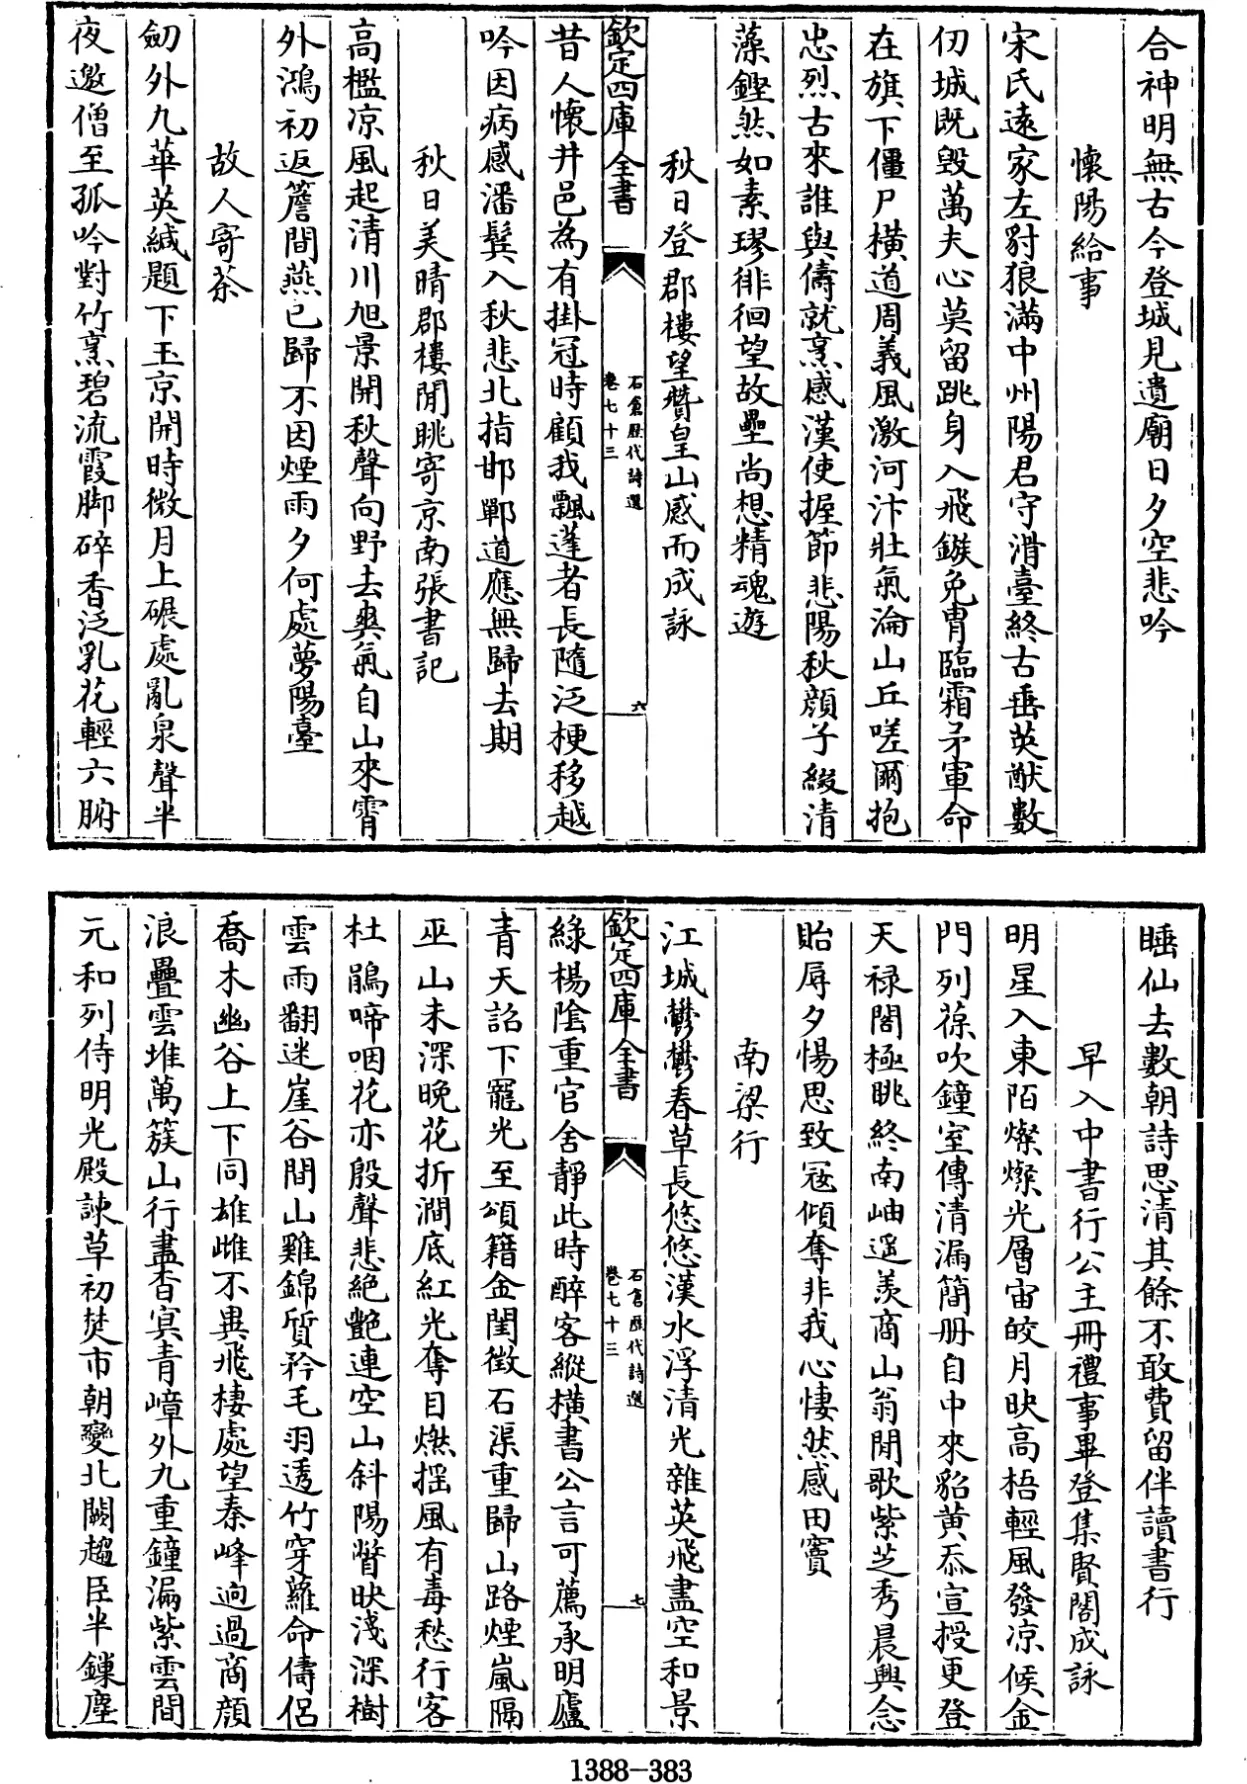 合神明無古今登城見遺廟日夕空悲吟
懷陽給事
宋氏遠家左豺狼滿中州陽君守滑臺終古垂英猷數
仞城既毀萬夫心莫留跳身入飛鏃免胄臨霜矛軍命
在旗下僵尸橫道周義風激河汴壯氣淪山丘嗟爾抱
忠烈古來誰與儔就烹感漢使握節悲陽秋顔子綴清
藻鏗然如素璆徘徊望故壘尚想精魂遊
秋日登郡樓望贊皇山感而成詠
欽定四庫全書
石倉歷代詩選
卷七十三
六
昔人懷井邑為有掛冠時顧我飄蓬者長隨泛梗移越
吟因病感潘鬢入秋悲北指邯鄲道應無歸去期
秋日美晴郡樓閒眺寄京南張書記
高檻凉風起清川旭景開秋聲向野去爽氣自山來霄
外鴻初返簷間燕已歸不因煙雨夕何處夢陽臺
故人寄茶
劒外九華英緘題下玉京開時微月上碾處亂泉聲半
夜邀僧至孤吟對竹烹碧流霞脚碎香泛乳花輕六腑
睡仙去數朝詩思清其餘不敢費留伴讀書行
早入中書行公主冊禮事畢登集賢閣成詠
明星入東陌燦燦光層宙皎月映高梧輕風發凉候金
門列葆吹鐘室傳清漏簡册自中來貂黄忝宣授更登
天禄閣極眺終南岫遥羡商山翁閒歌紫芝秀晨興念
貽辱夕惕思致寇傾奪非我心悽然感田竇
南梁行
江城鬱鬱春草長悠悠漢水浮清光雜英飛盡空和景
欽定四庫全書
石倉歷代詩選
卷七十三
七
綠楊陰重官舍靜此時醉客縱横書公言可薦承明廬
青天詔下寵光至頌籍金閨徵石渠重歸山路煙嵐隔
巫山未深晚花折澗底紅光奪目燃揺風有毒愁行客
杜鵑啼咽花亦殷聲悲絕艶連空山斜陽瞥映淺深樹
雲雨翻迷崖谷間山雞錦質矜毛羽透竹穿蘿命儔侣
喬木幽谷上下同雄雌不異飛棲處望秦峰迥過商顔
浪疊雲堆萬簇山行盡杳冥青嶂外九重鐘漏紫雲間
元和列侍明光殿諫草初焚市朝變北闕趨臣半鍊塵
1388-383